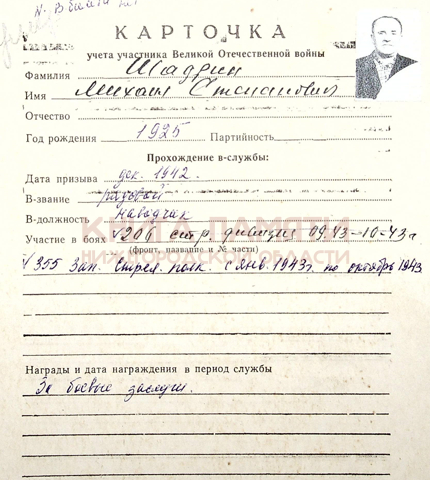 КАРТОЧКА
учета участника Великой Отечественной войны
Фамилия Шадрин
Имя Михаил Степанович
Отчество
Год рождения 1925 Партийность
Прохождение в-службы:
Дата призыва дек. 1942.
В-звание рядовой
В-должность наводчик
КНИГА ПАМЯТИ
Участие в боях √206 стр. дивизия 09.43-10-43г
(фронт, название и № части)
НИЖЕГОРОДСКОЙ ОБЛАСТИ
√355 Зап. Стрел. полк. с янв. 1943г. по октябрь 1943
Награды и дата награждения в период службы
За боевые заслуги.